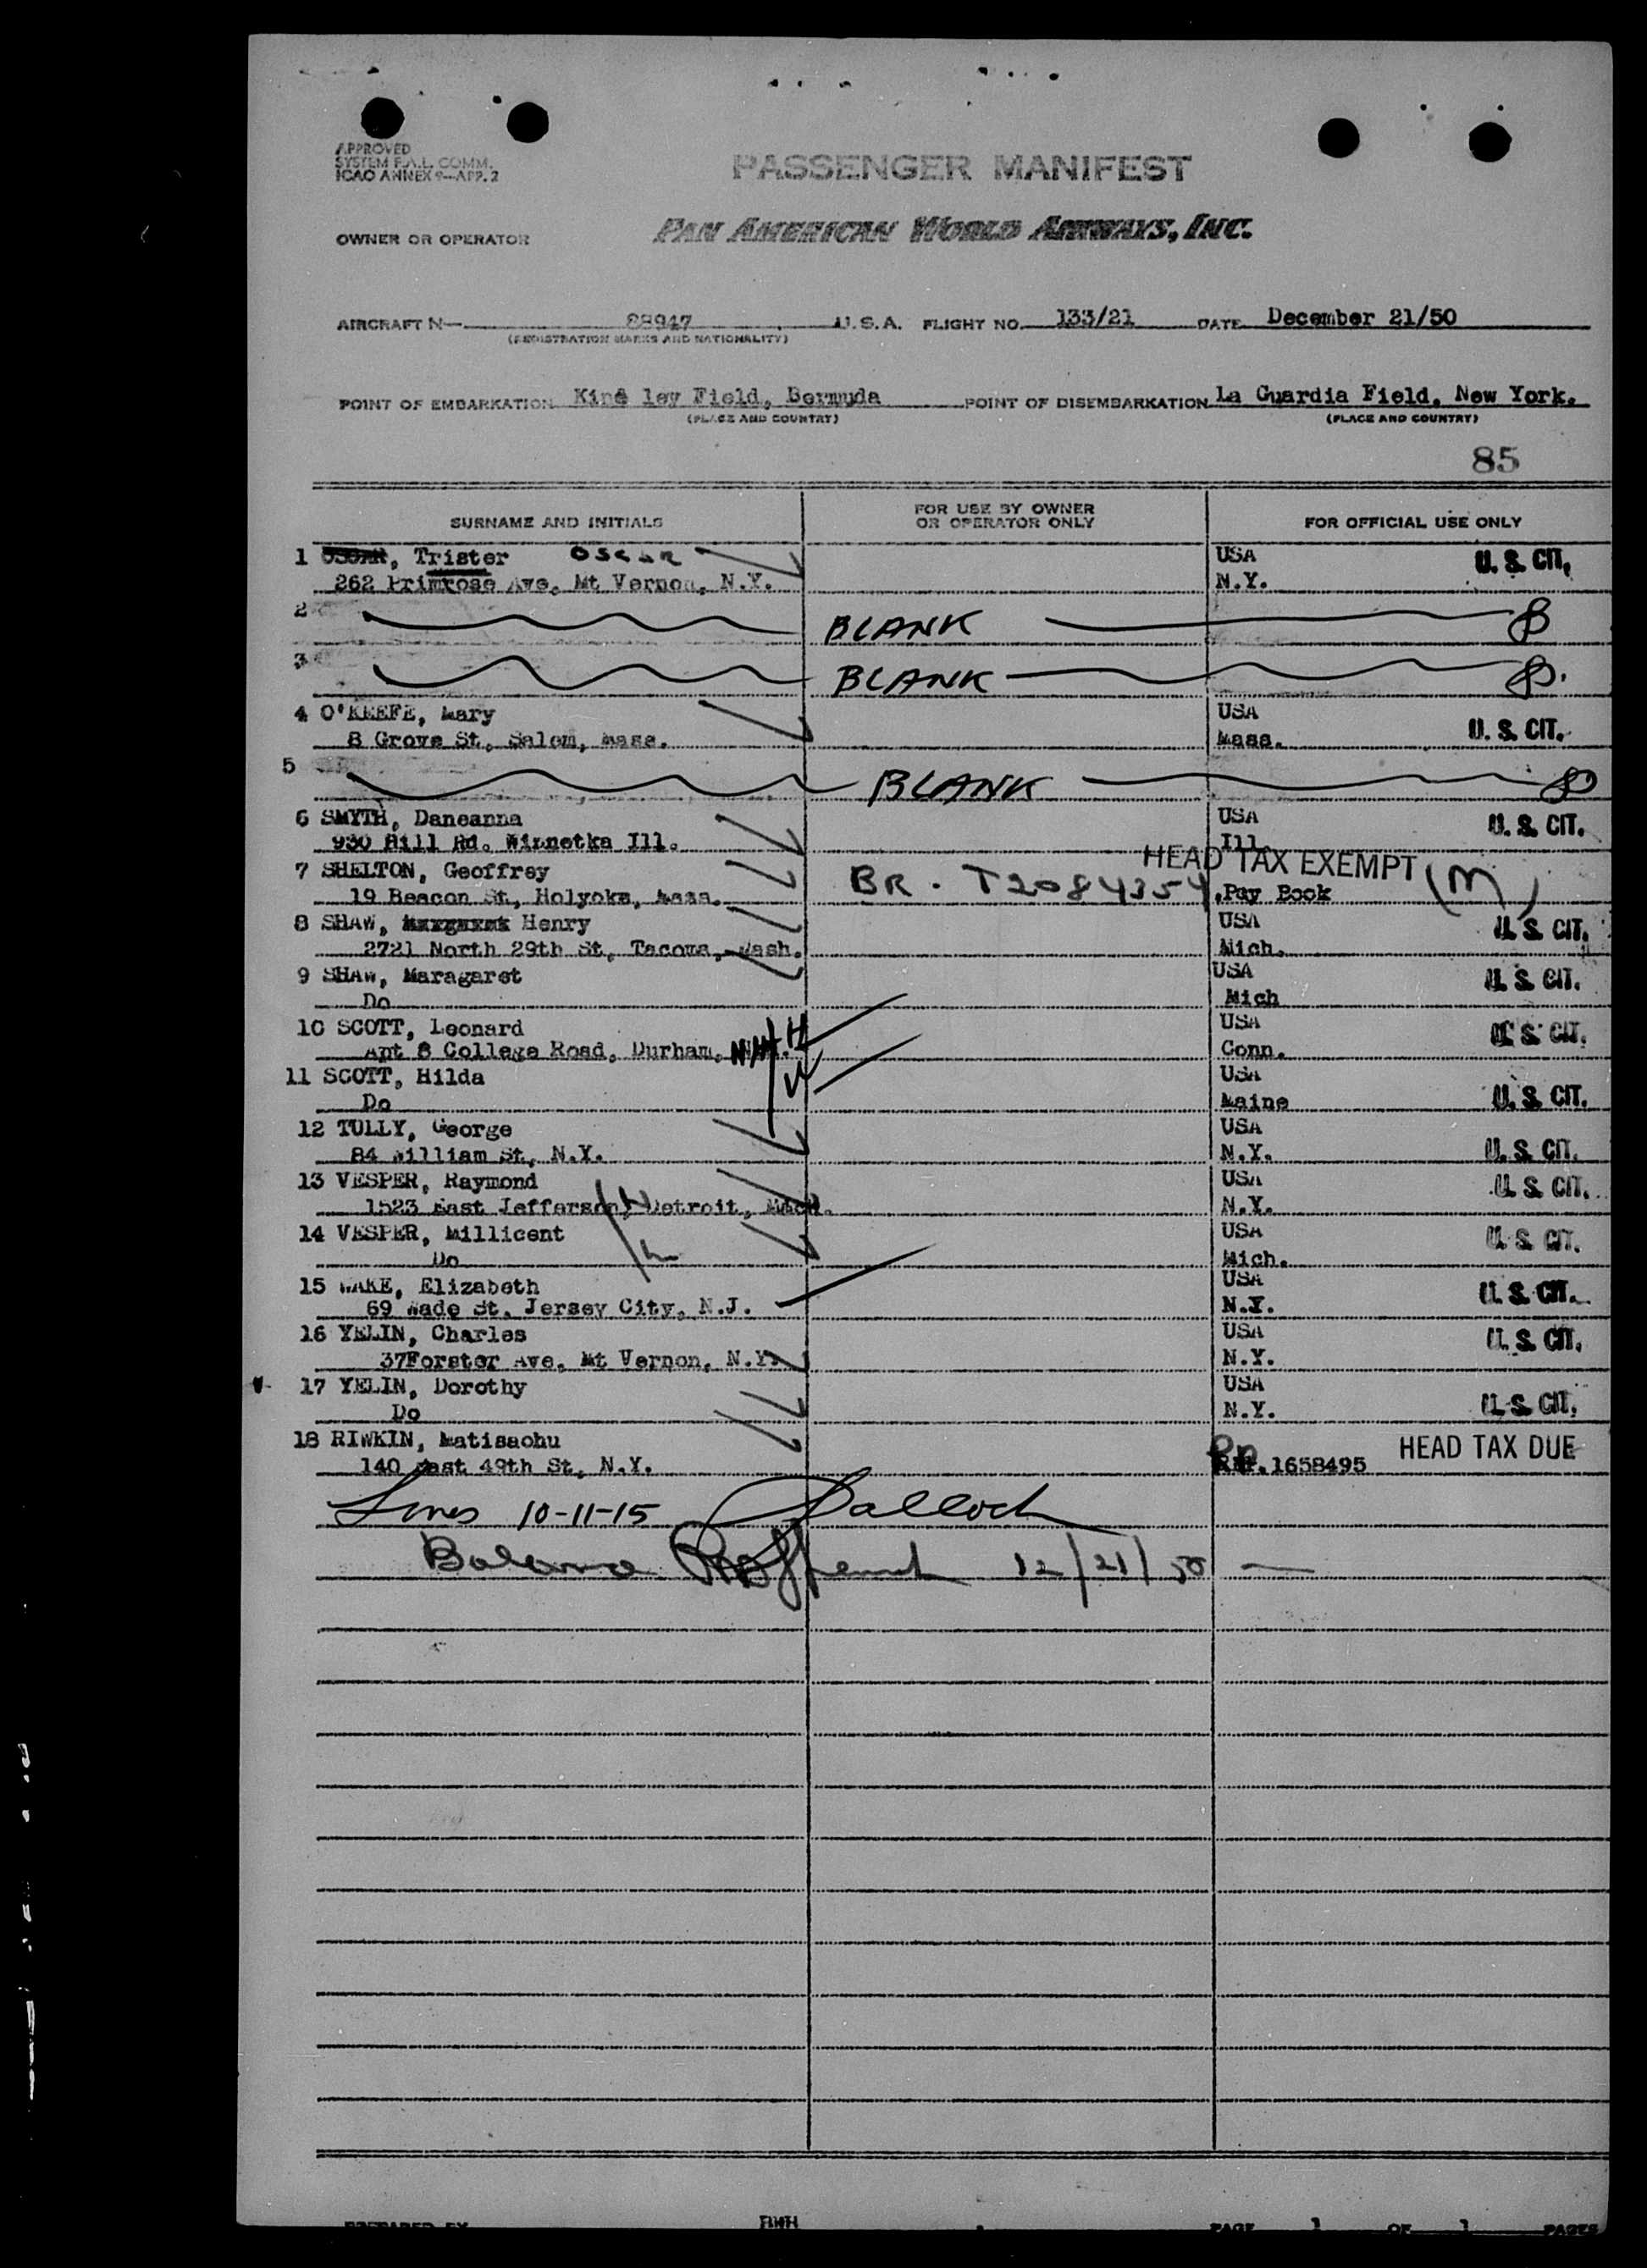 APPROVED
SYSTEM F.A.L. COMM.
ICAO ANNEX 9—APP. 2
PASSENGER MANIFEST
OWNER OR OPERATOR PAN AMERICAN WORLD AIRWAYS, INC.
AIRCRAFT N— 88947 U.S.A. FLIGHT NO. 133/21 DATE December 21/50
(REGISTRATION MARKS AND NATIONALITY)
POINT OF EMBARKATION Kind ley Field, Bermuda POINT OF DISEMBARKATION La Guardia Field, New York.
(PLACE AND COUNTRY) (PLACE AND COUNTRY)
85
SURNAME AND INITIALS FOR USE BY OWNER OR OPERATOR ONLY FOR OFFICIAL USE ONLY
1 OSCAR, Trister OSCAR USA U. S. CIT.
262 Primrose Ave, Mt Vernon, N.Y. N.Y.
2 BLANK
3 BLANK
4 O'KEEFE, Mary USA U. S. CIT.
8 Grove St, Salem, Mass. Mass.
5 BLANK
6 SMYTH, Daneanna USA U. S. CIT.
930 Hill Rd. Winnetka Ill. Ill.
7 SHELTON, Geoffrey HEAD TAX EXEMPT (M)
19 Beacon St, Holyoke, Mass. BR. T2084354 .Pay Book
8 SHAW, Henry USA U. S. CIT.
2721 North 29th St, Tacoma, Wash. Mich.
9 SHAW, Maragaret USA U. S. CIT.
Do Mich
10 SCOTT, Leonard USA U. S. CIT.
Apt 8 College Road, Durham, N.H. Conn.
11 SCOTT, Hilda USA
Do Maine U. S. CIT.
12 TULLY, George USA
84 William St, N.Y. N.Y. U. S. CIT.
13 VESPER, Raymond USA U. S. CIT.
1523 East Jefferson, Detroit, Mich. N.Y.
14 VESPER, Millicent USA U. S. CIT.
Do Mich.
15 WAKE, Elizabeth USA U. S. CIT.
69 Wade St, Jersey City, N.J. N.Y.
16 YELIN, Charles USA U. S. CIT.
37Forster Ave, Mt Vernon, N.Y. N.Y.
17 YELIN, Dorothy USA
Do N.Y. U. S. CIT.
18 RIWKIN, Matisaohu HEAD TAX DUE
140 East 49th St, N.Y. 1658495
Lines 10-11-15
12/21/50
PREPARED BY BWH PAGE 1 OF 1 PAGES